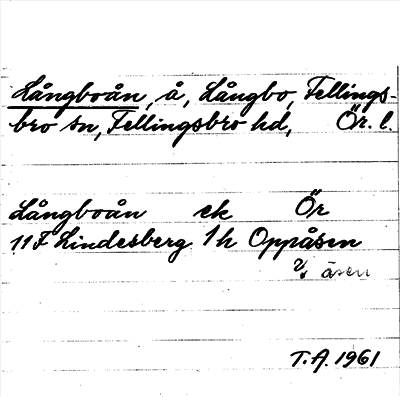 Långboån, å, Långbo, Fellings-
bro sn, Fellingsbro hd, Ör. l.
Långboån ek Ör
11 F Lindesberg 1 h Oppåsen
åsen
T.A. 1961